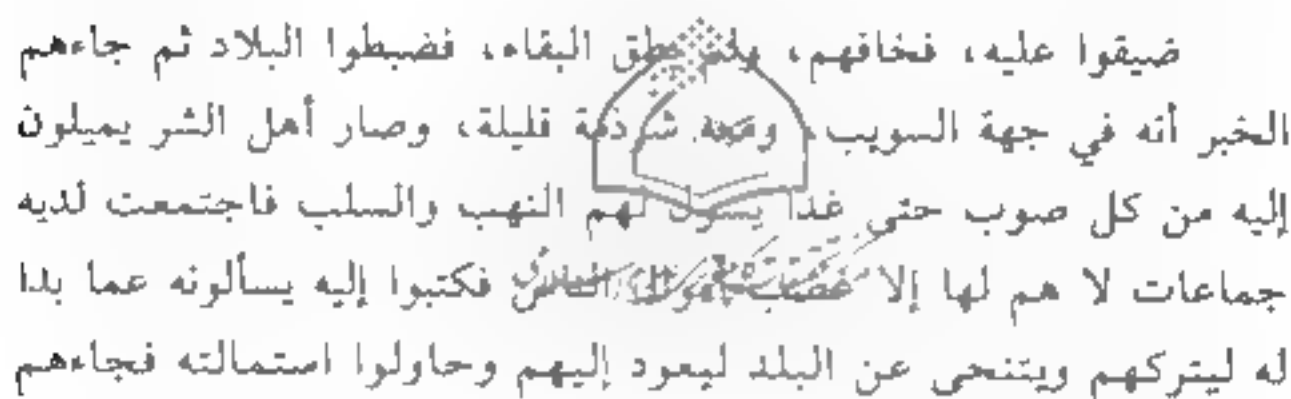 ضيقوا عليه، فخافهم، ولم يطق البقاء، فضبطوا البلاد ثم جاءهم
الخبر أنه في جهة السويب، ومعه شرذمة قليلة، وصار أهل الشر يميلون
إليه من كل صوب حتى غدا يسول لهم النهب والسلب فاجتمعت لديه
جماعات لا هم لها إلا غصب أموال الناس فكتبوا إليه يسألونه عما بدا
له ليتركهم ويتنحى عن البلد ليعود إليهم وحاولوا استمالته فجاءهم